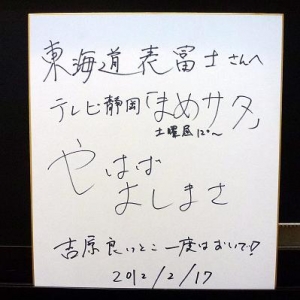 東海道表富士さんへ
テレビ静岡「まめサタ」
土曜昼12:00〜
やはば
よしまさ
吉原良いとこ一度はおいで!
2012/2/17